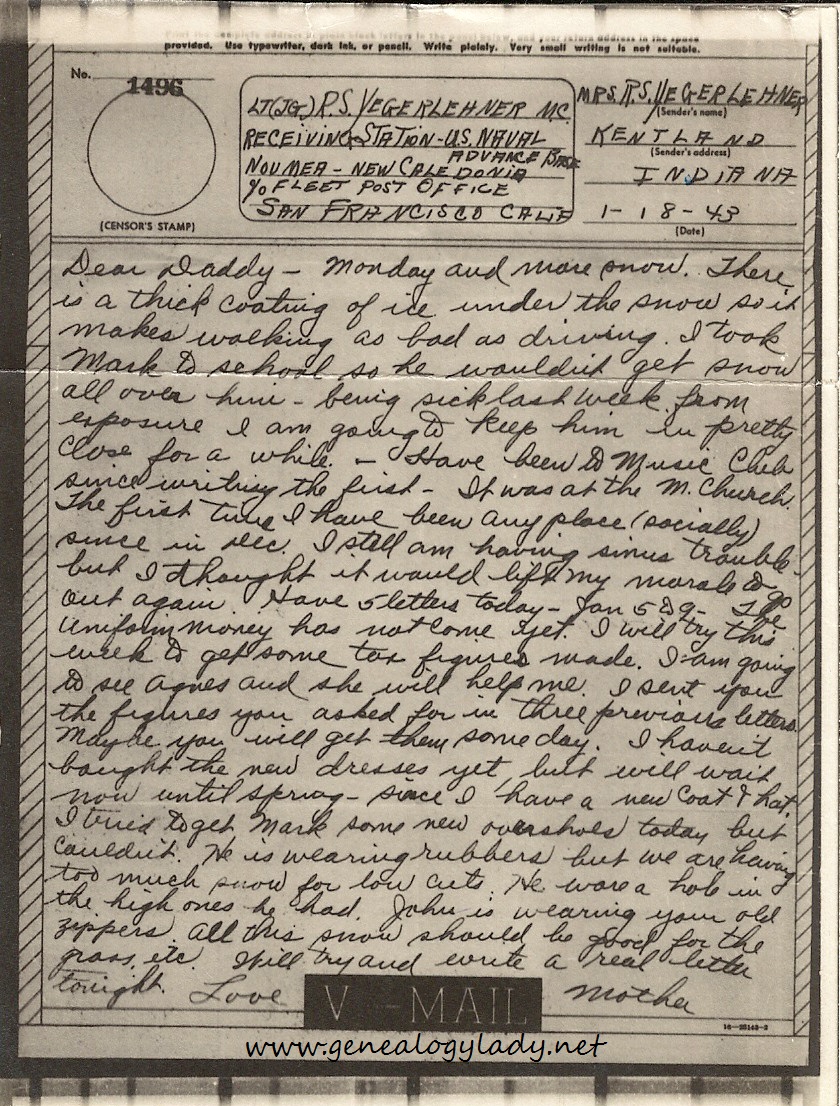 Print the complete address in plain block letters in the panel below, and your return address in the space
provided. Use typewriter, dark ink, or pencil. Write plainly. Very small writing is not suitable.
No.
1496
(CENSOR'S STAMP)
LT(JG) R.S. YEGERLEHNER M.C.
RECEIVING STATION - U.S. NAVAL
ADVANCE BASE
NOUMEA - NEW CALEDONIA
c/o FLEET POST OFFICE
SAN FRANCISCO CALIF
MRS. R.S. YEGERLEHNER
(Sender's name)
KENTLAND
(Sender's address)
INDIANA
1-18-43
(Date)
Dear Daddy - Monday and more snow. There
is a thick coating of ice under the snow so it
makes walking as bad as driving. I took
Mark to school so he wouldn't get snow
all over him - being sick last week from
exposure I am going to keep him in pretty
close for a while. - Have been to Music Club
since writing the first - It was at the M. Church.
The first time I have been any place (socially)
since in Dec. I still am having sinus trouble -
but I thought it would lift my morale to go
out again. Have 5 letters today - Jan 5 to 9 - The
uniform money has not come yet. I will try this
week to get some tax figures made. I am going
to see Agnes and she will help me. I sent you
the figures you asked for in three previous letters.
Maybe you will get them some day. I haven't
bought the new dresses yet, but will wait
now until spring - since I have a new coat & hat.
I tried to get Mark some new overshoes today but
couldn't. He is wearing rubbers but we are having
too much snow for low cuts. He wore a hole in
the high ones he had. John is wearing your old
zippers. All this snow should be good for the
grass, etc. Will try and write a real letter
tonight. Love Mother
V - MAIL
16-28143-2
www.genealogylady.net